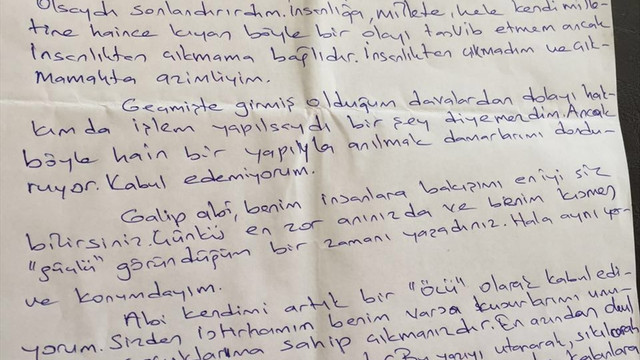 Olsaydı sonlandırırdım. İnsanlığa, millete, hele kendi mille-
tine haince kıyan böyle bir olayı tasvib etmem ancak
İnsanlıktan çıkmama bağlıdır. İnsanlıktan çıkmadım ve çık-
mamakta azimliyim.
Geçmişte girmiş olduğum davalardan dolayı hak-
kımda işlem yapılsaydı bir şey diyemezdim. Ancak
böyle hain bir yapıyla anılmak damarlarımı dondu-
ruyor. Kabul edemiyorum.
Galip abi, benim insanlara bakışımı en iyi siz
bilirsiniz. Çünkü en zor anınızda ve benim kısmen
"güçlü" göründüğüm bir zamanı yaşadınız. Hala aynı yer-
ve konumdayım.
Abi kendimi artık bir "ÖCÜ" olarak kabul edi-
yorum. Sizden istirhamım benim varsa kusurlarımı unu-
sahip çıkmanızdır. En azından
Bu yapıyı utanarak, sıkılarak